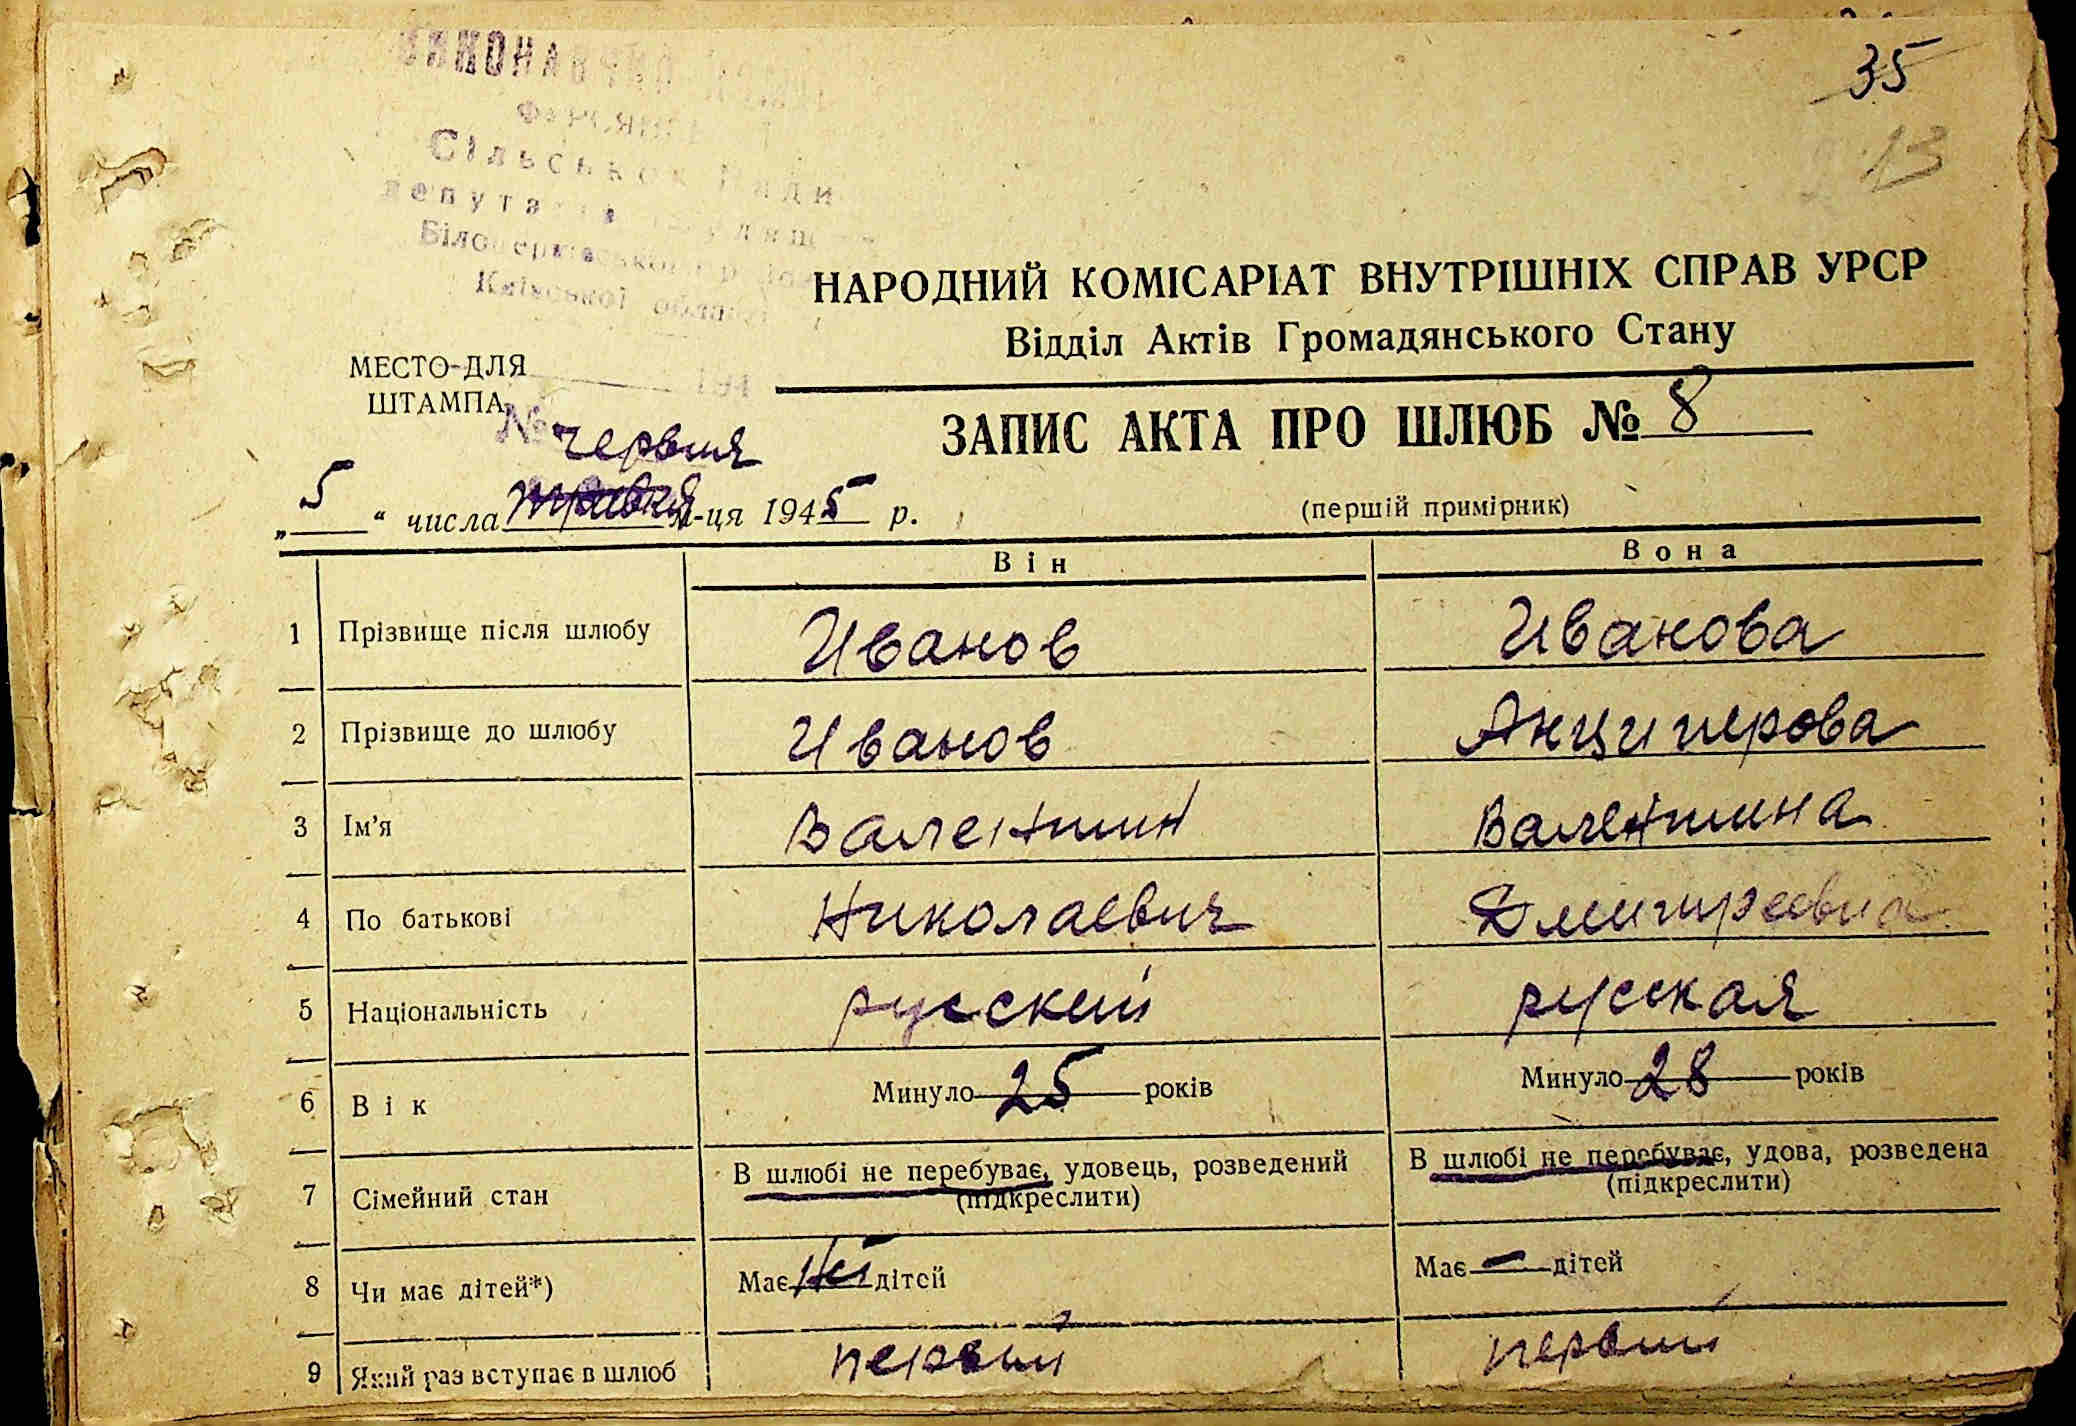 35
13
Сільської Ради
Білоцерківського
Київської області
НАРОДНИЙ КОМІСАРІАТ ВНУТРІШНІХ СПРАВ УРСР
Відділ Актів Громадянського Стану
МЕСТО-ДЛЯ
ШТАМПА
194
№
ЗАПИС АКТА ПРО ШЛЮБ № 8
червня
„5“ числа травня м-ця 1945 р.
(першій примірник)
Він Вона
1 Прізвище після шлюбу Иванов Иванова
2 Прізвище до шлюбу Иванов Анциперова
3 Ім'я Валентин Валентина
4 По батькові Николаевич Дмитревна
5 Національність русский русская
6 Вік Минуло 25 років Минуло 28 років
7 Сімейний стан В шлюбі не перебуває, удовець, розведений В шлюбі не перебуває, удова, розведена
(підкреслити) (підкреслити)
8 Чи має дітей*) Має ні дітей Має — дітей
9 Який раз вступає в шлюб первый первый